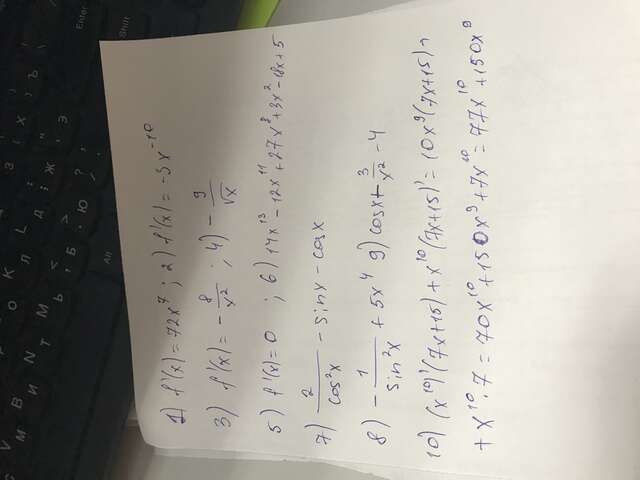 1) f'(x) = 72x⁷ ; 2) f'(x) = -3x⁻¹⁰
3) f'(x) = - 8/x² ; 4) - 9/√x
5) f'(x) = 0 ; 6) 14x¹³ - 12x¹¹ + 27x⁸ + 3x² - 18x + 5
7) 2/cos²x - sinx - cosx
8) - 1/sin²x + 5x⁴ 9) cosx + 3/x² - 4
10) (x¹⁰)'(7x+15) + x¹⁰(7x+15)' = 10x⁹(7x+15) +
+ x¹⁰·7 = 70x¹⁰ + 150x⁹ + 7x¹⁰ = 77x¹⁰ + 150x⁹
Enter
Shift
Alt